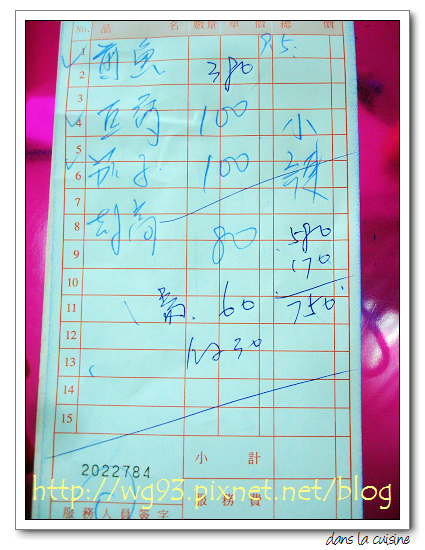 No. 品 名 數量 單 價 總 價
1 95.
2 魚 380
3
4 豆 100 小
5
6 茄子 100
7
8 80 580
9 170
10
11 60 750
12
13 30
14
15
2022784
小 計
http://wg93.pixnet.net/blog
服 務 費
服 務 人 員 簽 字
dans la cuisine